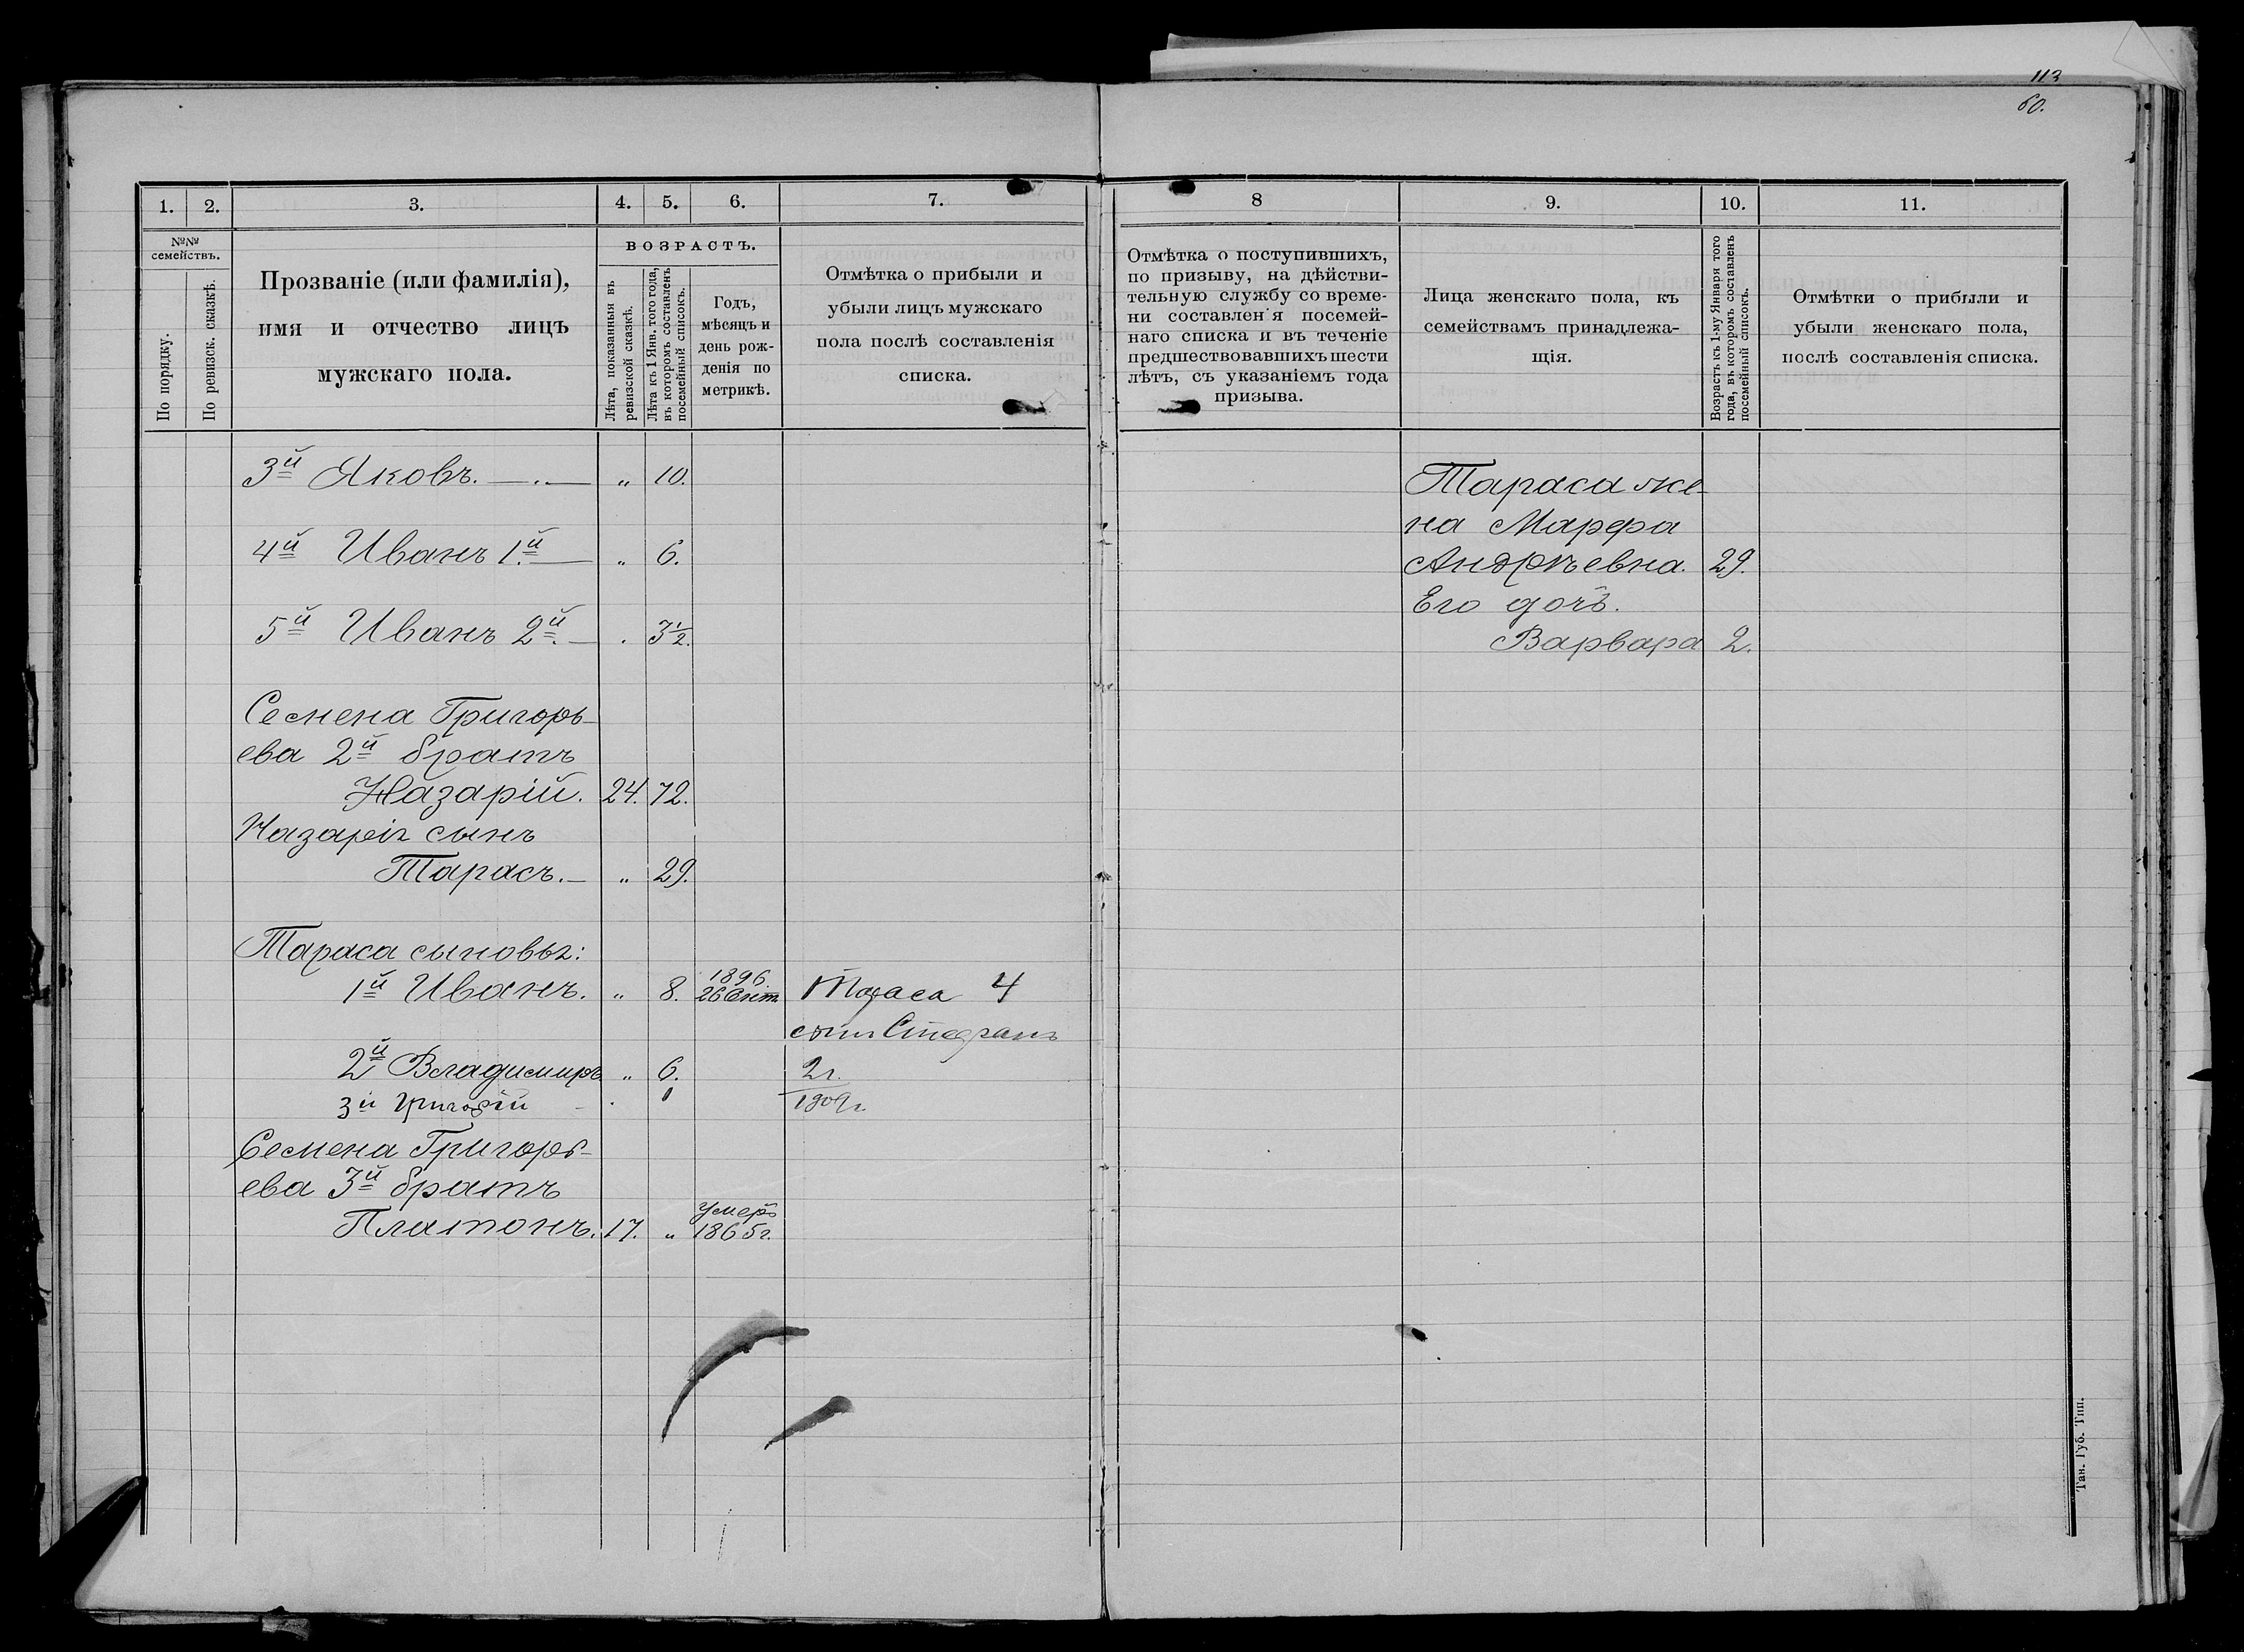 113
60.
1. 2. 3. 4. 5. 6. 7.
№№ семействъ.
По порядку.
По ревизск. сказкѣ.
Прозваніе (или фамилія),
имя и отчество лицъ
мужскаго пола.
ВОЗРАСТЪ.
Лѣта, показанныя въ
ревизской сказкѣ.
Лѣта къ 1 Янв. того года,
въ которомъ составленъ
посемейный списокъ.
Годъ,
мѣсяцъ и
день рож-
денія по
метрикѣ.
Отмѣтка о прибыли и
убыли лицъ мужскаго
пола послѣ составленія
списка.
3й Яковъ. — „ 10.
4й Иванъ 1й — „ 6.
5й Иванъ 2й. — . 3½.
Семена Григорь-
ева 2й братъ
Назарій. 24. 72.
Назарія сынъ
Тарасъ. — „ 29.
Тараса сыновья:
1896
1й Иванъ. „ 8. 26 Тараса 4
сынъ Стефанъ
2й Владимиръ „ 6. 2г.
3й Григорій - . 1 1909г.
Семена Григорь-
ева 3й братъ
умеръ
Платонъ. 17. „ 1865г.
8 9. 10. 11.
Отмѣтка о поступившихъ,
по призыву, на дѣйстви-
тельную службу со време-
ни составленія посемей-
наго списка и въ теченіе
предшествовавшихъ шести
лѣтъ, съ указаніемъ года
призыва.
Лица женскаго пола, къ
семействамъ принадлежа-
щія.
Возрастъ къ 1-му Января того
года, въ которомъ составленъ
посемейный списокъ.
Отмѣтки о прибыли и
убыли женскаго пола,
послѣ составленія списка.
Тараса же-
на Марфа
Андрѣевна. 29.
Его дочь.
Варвара 2.
Тав. Губ. Тип.